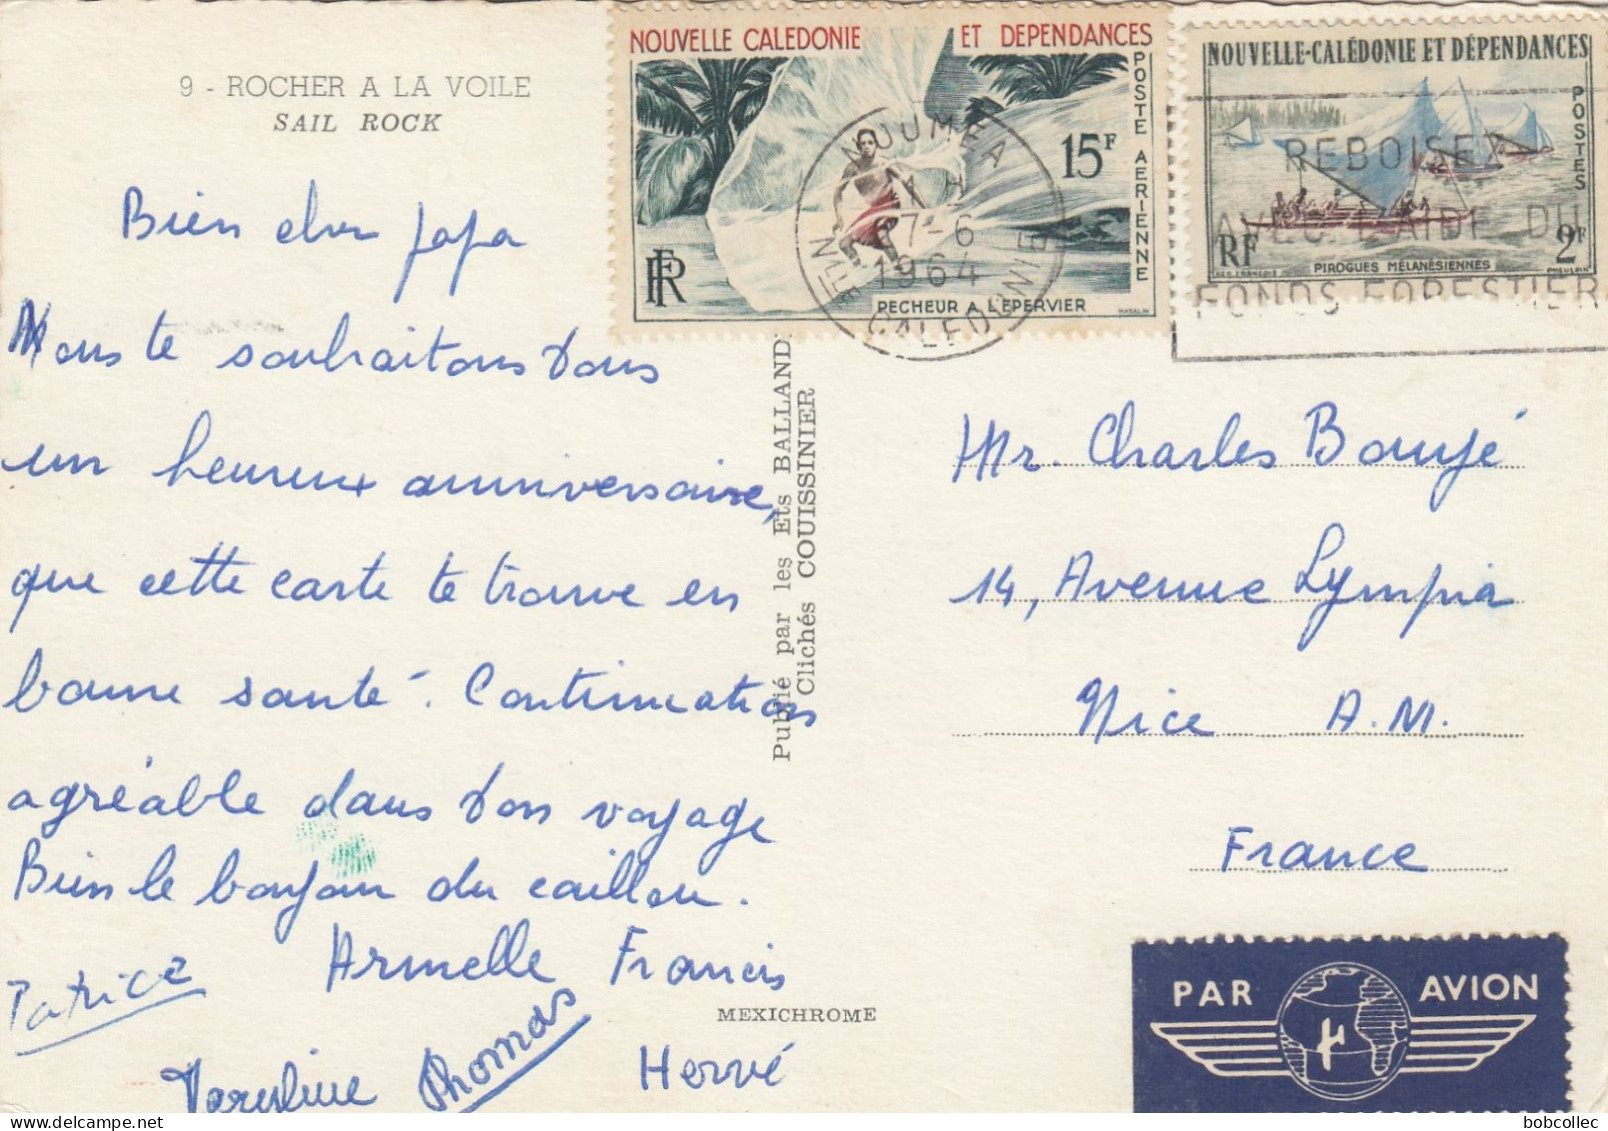 9 - ROCHER A LA VOILE
SAIL ROCK
Bien cher papa
Nous te souhaitons tous
un heureux anniversaire,
que cette carte te trouve en
bonne santé. Continuation
agréable dans ton voyage
Bien le bonjour du caillou.
Armelle Francis
Patrice
Thomas
Hervé
Publié par les Ets BALLAND
Clichés COUISSINIER
MEXICHROME
NOUVELLE CALEDONIE ET DEPENDANCES
POSTE AERIENNE
15F
RF
PECHEUR A L'EPERVIER
NOUMEA
7-6
1964
NLLE CALEDONIE
NOUVELLE-CALÉDONIE ET DÉPENDANCES
POSTES
RF
2F
PIROGUES MÉLANÉSIENNES
REBOISEZ
AVEC L'AIDE DU
FONDS FORESTIER
Mr. Charles Bougé
14, Avenue Lympia
Nice A.M.
France
PAR AVION
bobcollec